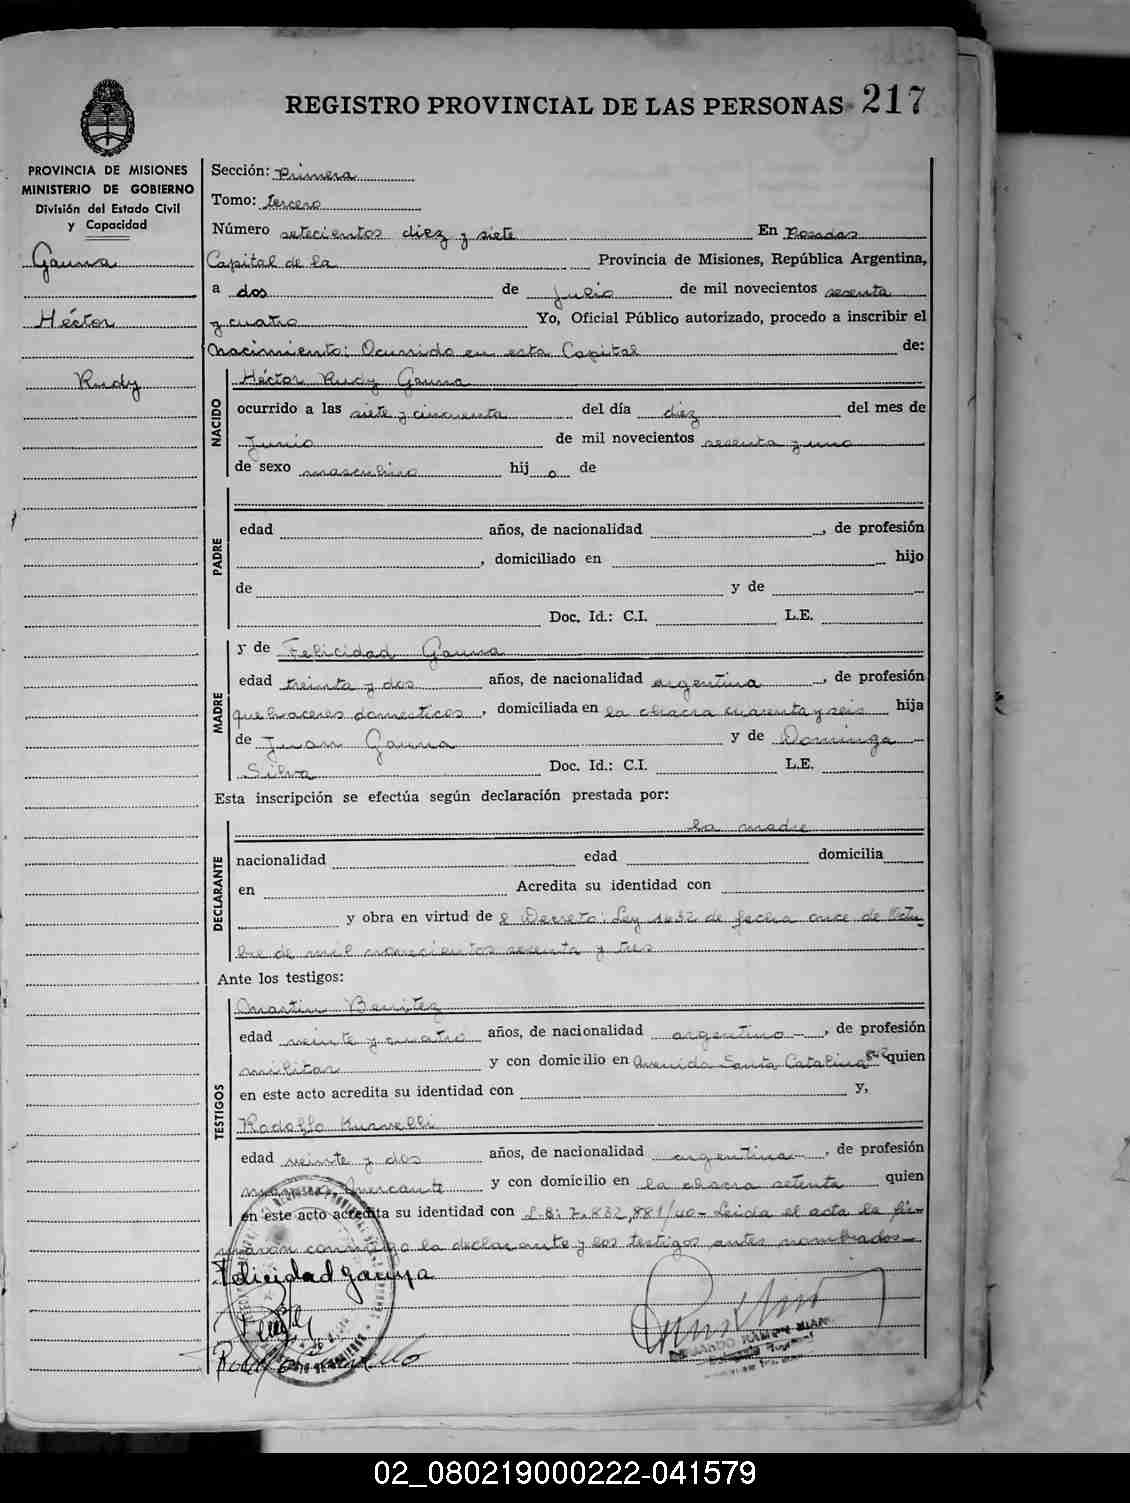 REGISTRO PROVINCIAL DE LAS PERSONAS 217
PROVINCIA DE MISIONES
MINISTERIO DE GOBIERNO
División del Estado Civil
y Capacidad
Gauna
Héctor
Rudy
Sección: Primera
Tomo: tercero
Número setecientos diez y siete En Posadas
Capital de la Provincia de Misiones, República Argentina,
a dos de julio de mil novecientos sesenta
y cuatro Yo, Oficial Público autorizado, procedo a inscribir el
Nacimiento: Ocurrido en esta Capital de:
NACIDO
Héctor Rudy Gauna
ocurrido a las siete y cincuenta del día diez del mes de
Junio de mil novecientos sesenta y uno
de sexo masculino hij o de
PADRE
edad años, de nacionalidad , de profesión
, domiciliado en hijo
de y de
Doc. Id.: C.I. L.E.
MADRE
y de Felicidad Gauna
edad treinta y dos años, de nacionalidad argentina , de profesión
quehaceres domésticos , domiciliada en la chacra cuarenta y seis hija
de Juan Gauna y de Dominga
Silva Doc. Id.: C.I. L.E.
Esta inscripción se efectúa según declaración prestada por:
DECLARANTE
la madre
nacionalidad edad domicilia
en Acredita su identidad con
y obra en virtud de Decreto Ley 1632 de fecha once de Octu
bre de mil novecientos sesenta y tres
Ante los testigos:
TESTIGOS
Martin Benitez
edad veinte y cuatro años, de nacionalidad argentino , de profesión
militar y con domicilio en Avenida Santa Catalina quien
en este acto acredita su identidad con y,
Rodolfo
edad veinte y dos años, de nacionalidad argentina , de profesión
y con domicilio en la chacra setenta quien
en este acto acredita su identidad con 7.832.881/40- Leida el acta la fir-
maron conmigo la declarante y los testigos antes nombrados
Felicidad gauna
RAMON
02_080219000222-041579